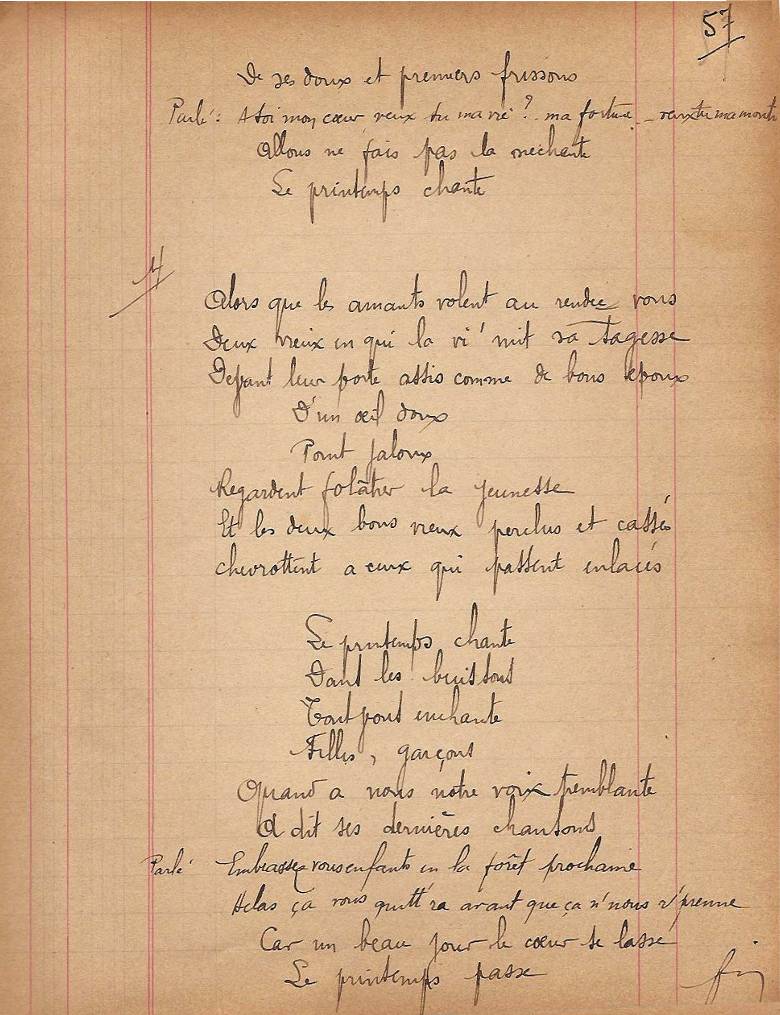 57
De ses doux et premiers frissons
Parlé : A toi mon cœur veux tu ma vie ? ma fortune veux tu ma montr
Allons ne fais pas la mechante
Le printemps chante
4
Alors que les amants volent au rendez vous
Deux vieux en qui la vi' mit sa sagesse
Devant leur porte assis comme de bons époux
D'un œil doux
Point jaloux
Regardent folâtrer la jeunesse
Et les deux bons vieux perclus et cassés
chevrottent a ceux qui passent enlacés
Le printemps chante
Dans les buissons
Tout vous enchante
Filles, garçons
Quand a nous notre voix tremblante
A dit ses dernières chansons
Parlé Embrassez vous enfants en la forêt prochaine
Helas ça vous quitt'ra avant que ça n'nous r'prenne
Car un beau jour le cœur se lasse
Le printemps passe
fin